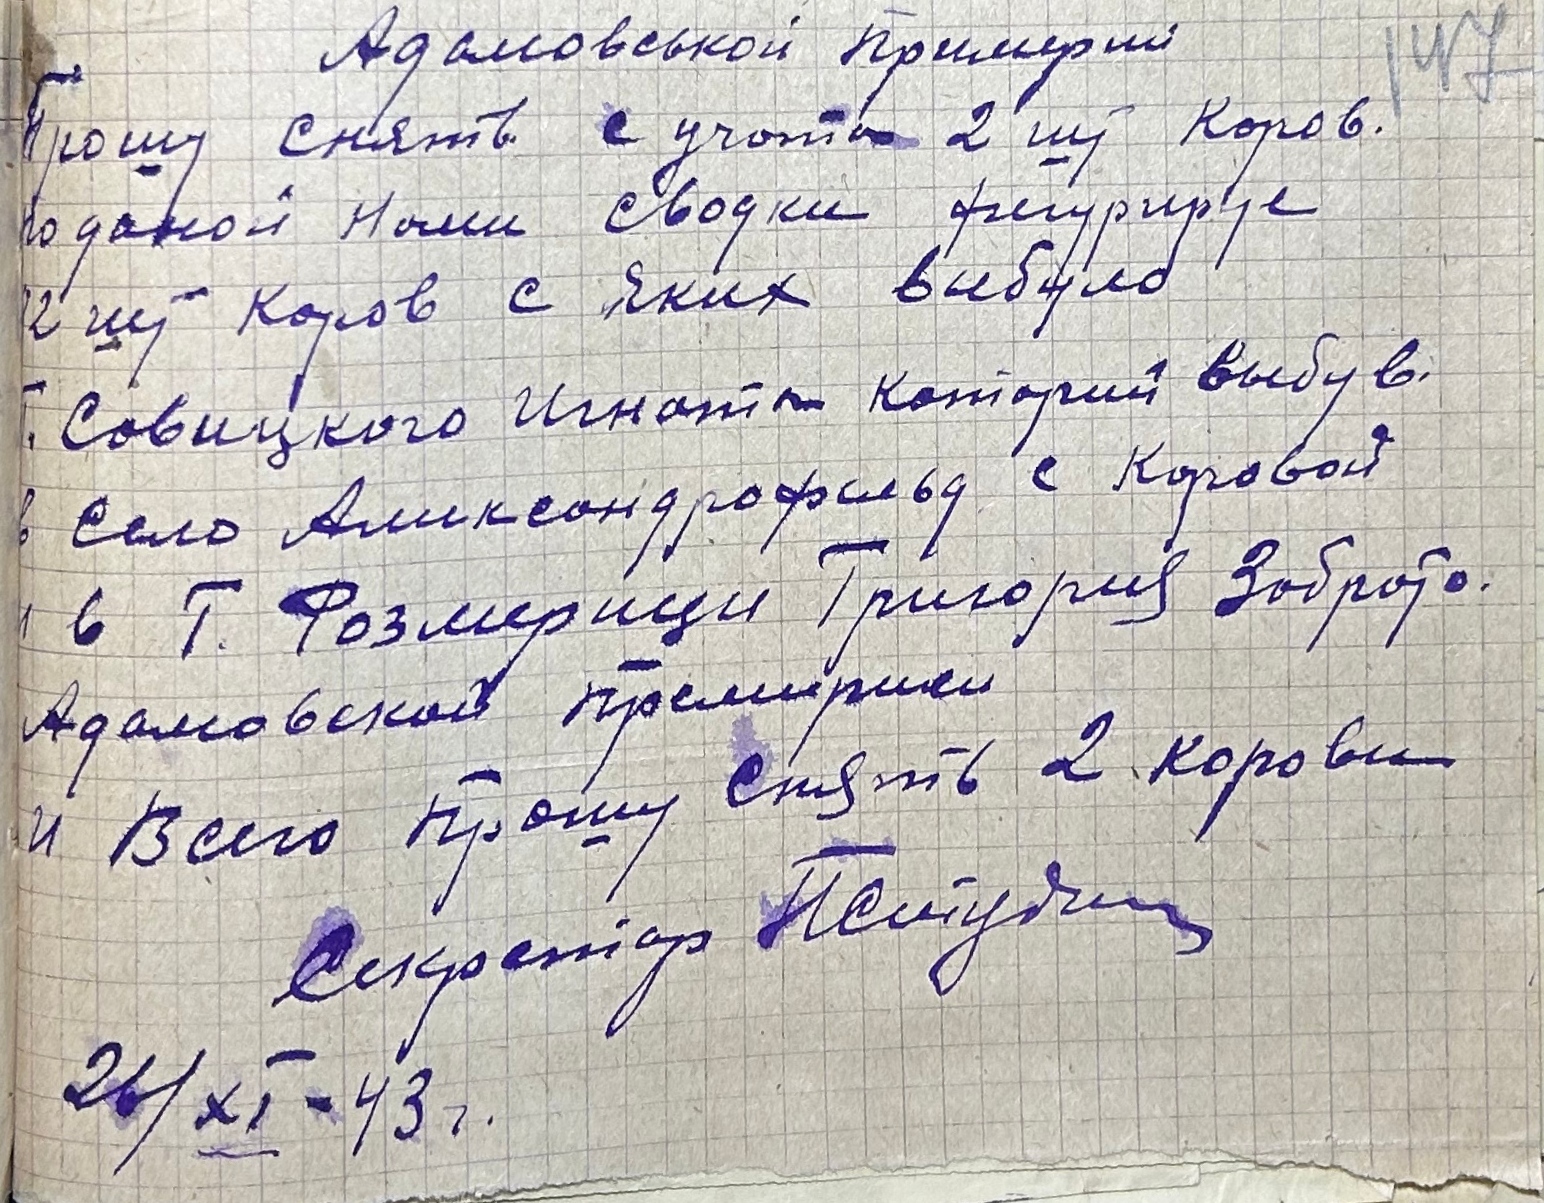 Адамовськой Примерии
147
Прошу снять с учота 2 шт Коров.
поданой Нами Сводки фигурируе
12 шт Коров с яких выбуло
Т. Савицкого Игната каторий выбув.
в Село Алиександрофельд с Коровой
и в Т. Розмерици Григория Забрато.
Адамовской Премирики
и Всего Прошу Снять 2 коровы
Секретар
26/XI-43 г.